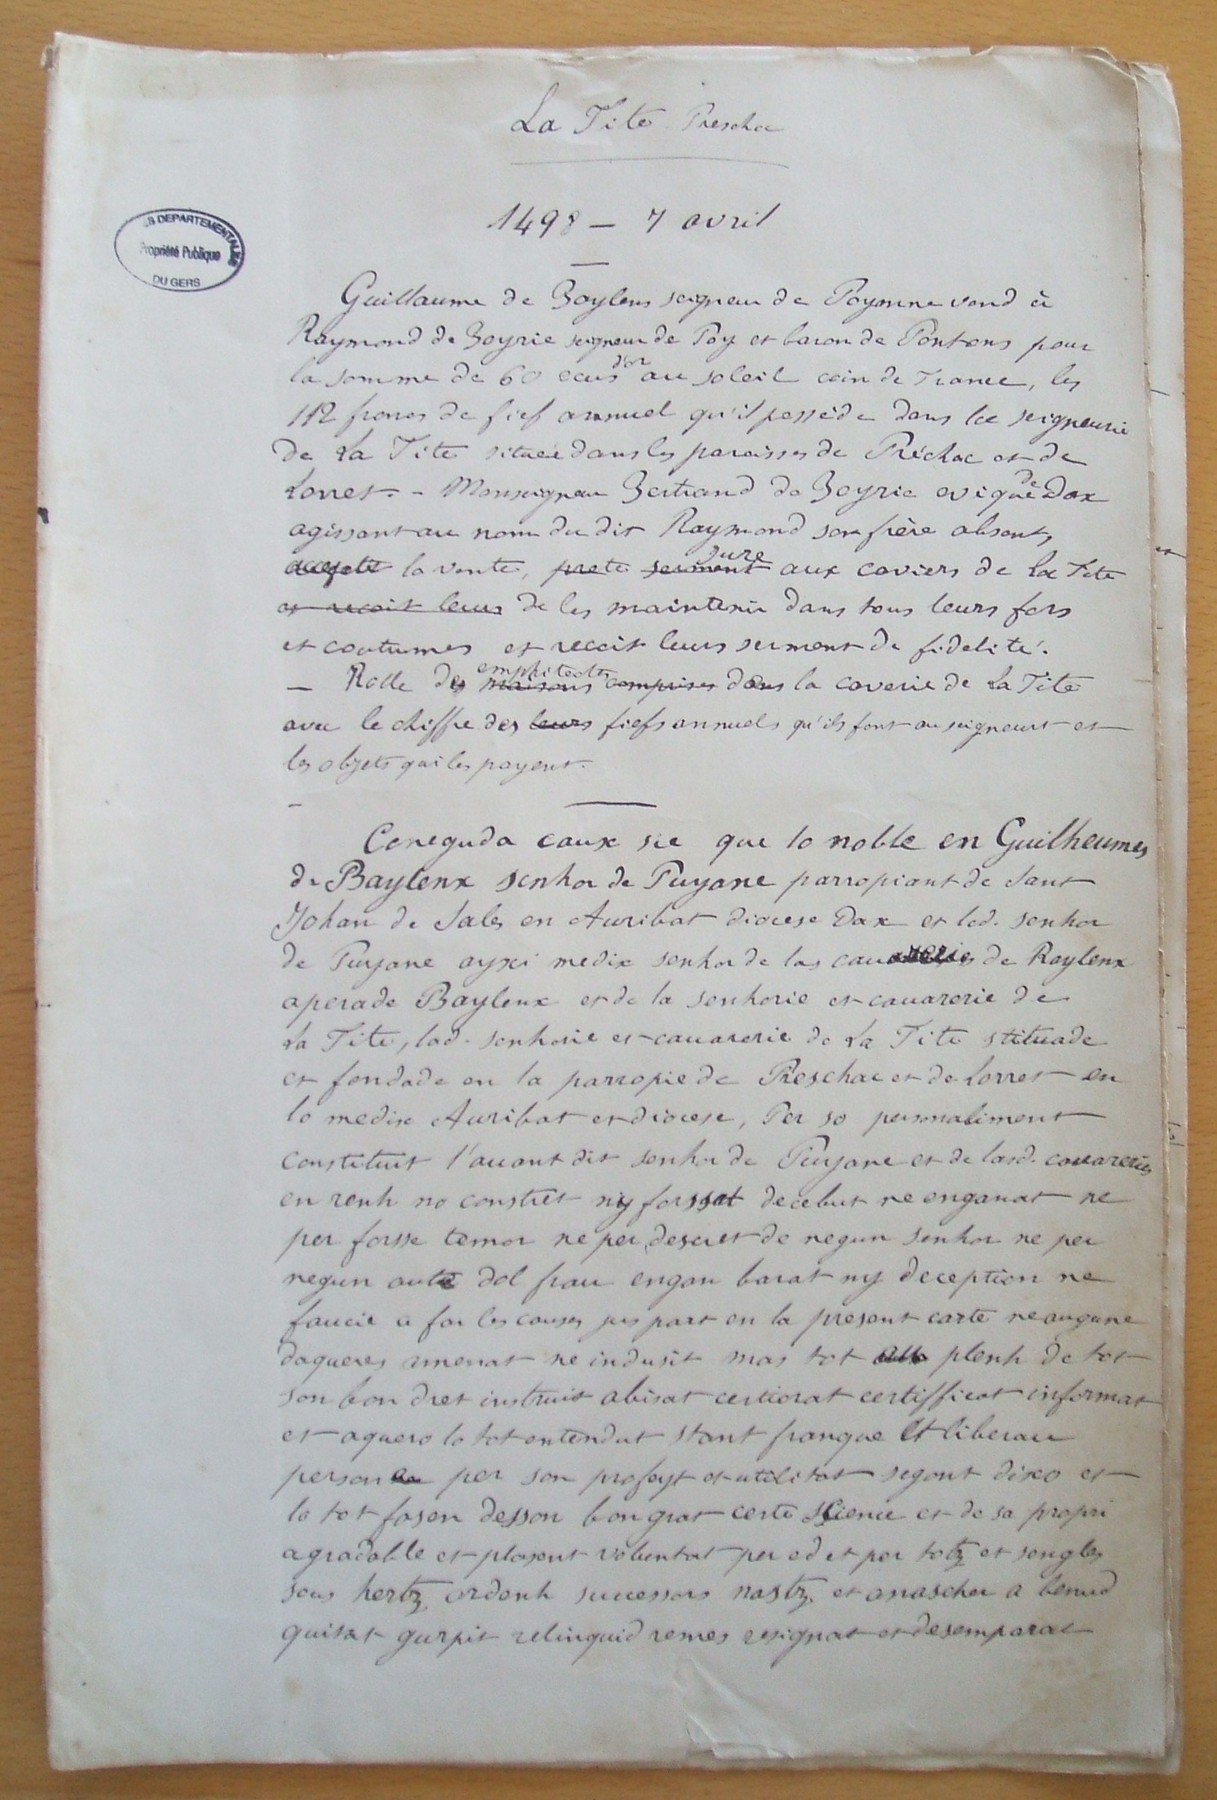 La Tite Preschac
1498 — 7 avril
S DEPARTEMENTALES
Propriété Publique
DU GERS
Guillaume de Baylens seigneur de Poyanne vend à
Raymond de Boyrie seigneur de Poy et baron de Pontons pour
la somme de 60 ecus d'or au soleil coin de France, les
112 francs de fief annuel qu'il possède dans la seigneurie
de La Tite située dans les paroisses de Préchac et de
Lorret. – Monseigneur Bertrand de Boyrie evique de Dax
agissant au nom du dit Raymond son frère absent,
accepte la vente, prete serment jure aux caviers de La Tite
et recoit leurs de les maintenir dans tous leurs fors
et coutumes et recoit leurs serment de fidelité.
— Rolle des maisons emphiteotes comprises dans la caverie de La Tite
avec le chiffre des leurs fiefs annuels qu'ils font au seigneur et
les objets qui les payent.
Coneguda caux sie que lo noble en Guilheumes
de Baylenx senhor de Puyane parropiant de Sant
Johan de Sales en Auribat diocese Dax et lod. senhor
de Puyane ayxi medix senhor de las cauareries de Baylenx
aperade Baylenx et de la senhorie et cauarerie de
La Tite, lad. senhorie et cauarerie de La Tite stituade
et fondade en la parropie de Preschac et de Lorret en
lo medix Auribat et diocese, Per so personaliment
constituit l'auant dit senhor de Puyane et de lasd. cauareries
en renh no constret ny forssat decebut ne enganat ne
per forsse temor ne per decret de negun senhor ne per
negun aute dol frau engan barat ny deception ne
faucie a far les causes jus part en la present carte ne augune
daqueres amenat ne indusit mas tot plenh de tot
son bon dret instruit abisat certiorat certifficat informat
et aquero lo tot entendut stant franque et liberau
persone per son profeyt et utilitat segont dixo et
lo tot fasen desson bon grat certe science et de sa propri
agradable et plasent voluntat per ed et per totz et sengles
sous hertz ordenh successors nastz et a nascher a benud
quitat gurpit relinquid remes resignat et desemparat